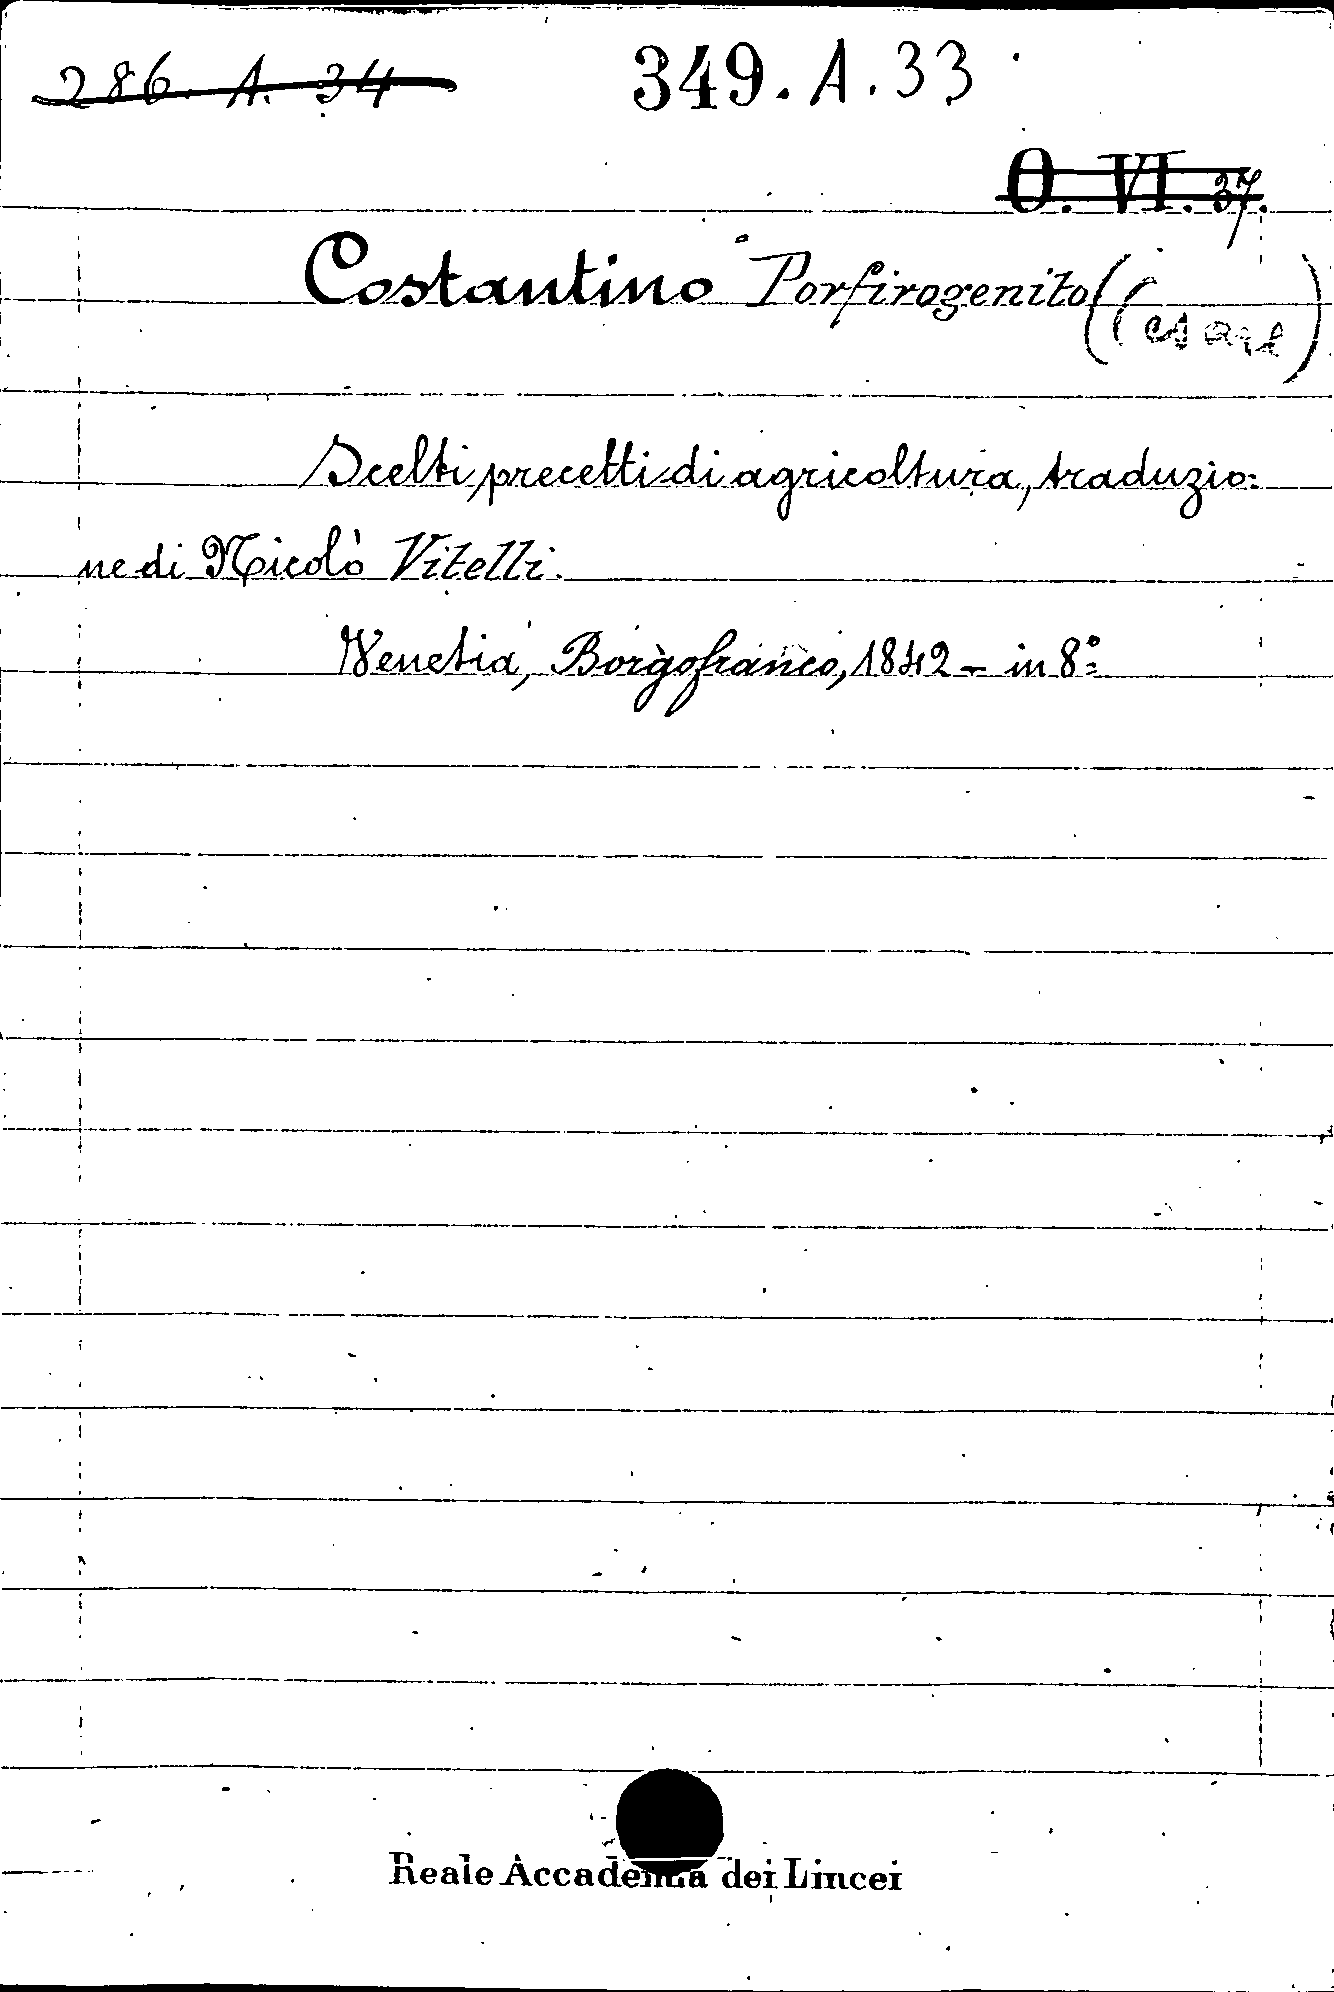 286. A. 34
349. A. 33
O. VI. 37.
Costantino Porfirogenito (Cesare)
Scelti precetti di agricoltura, traduzio=
ne di Nicolò Vitelli.
Venetia, Borgofranco, 1842 - in 8°=
Reale Accademia dei Lincei